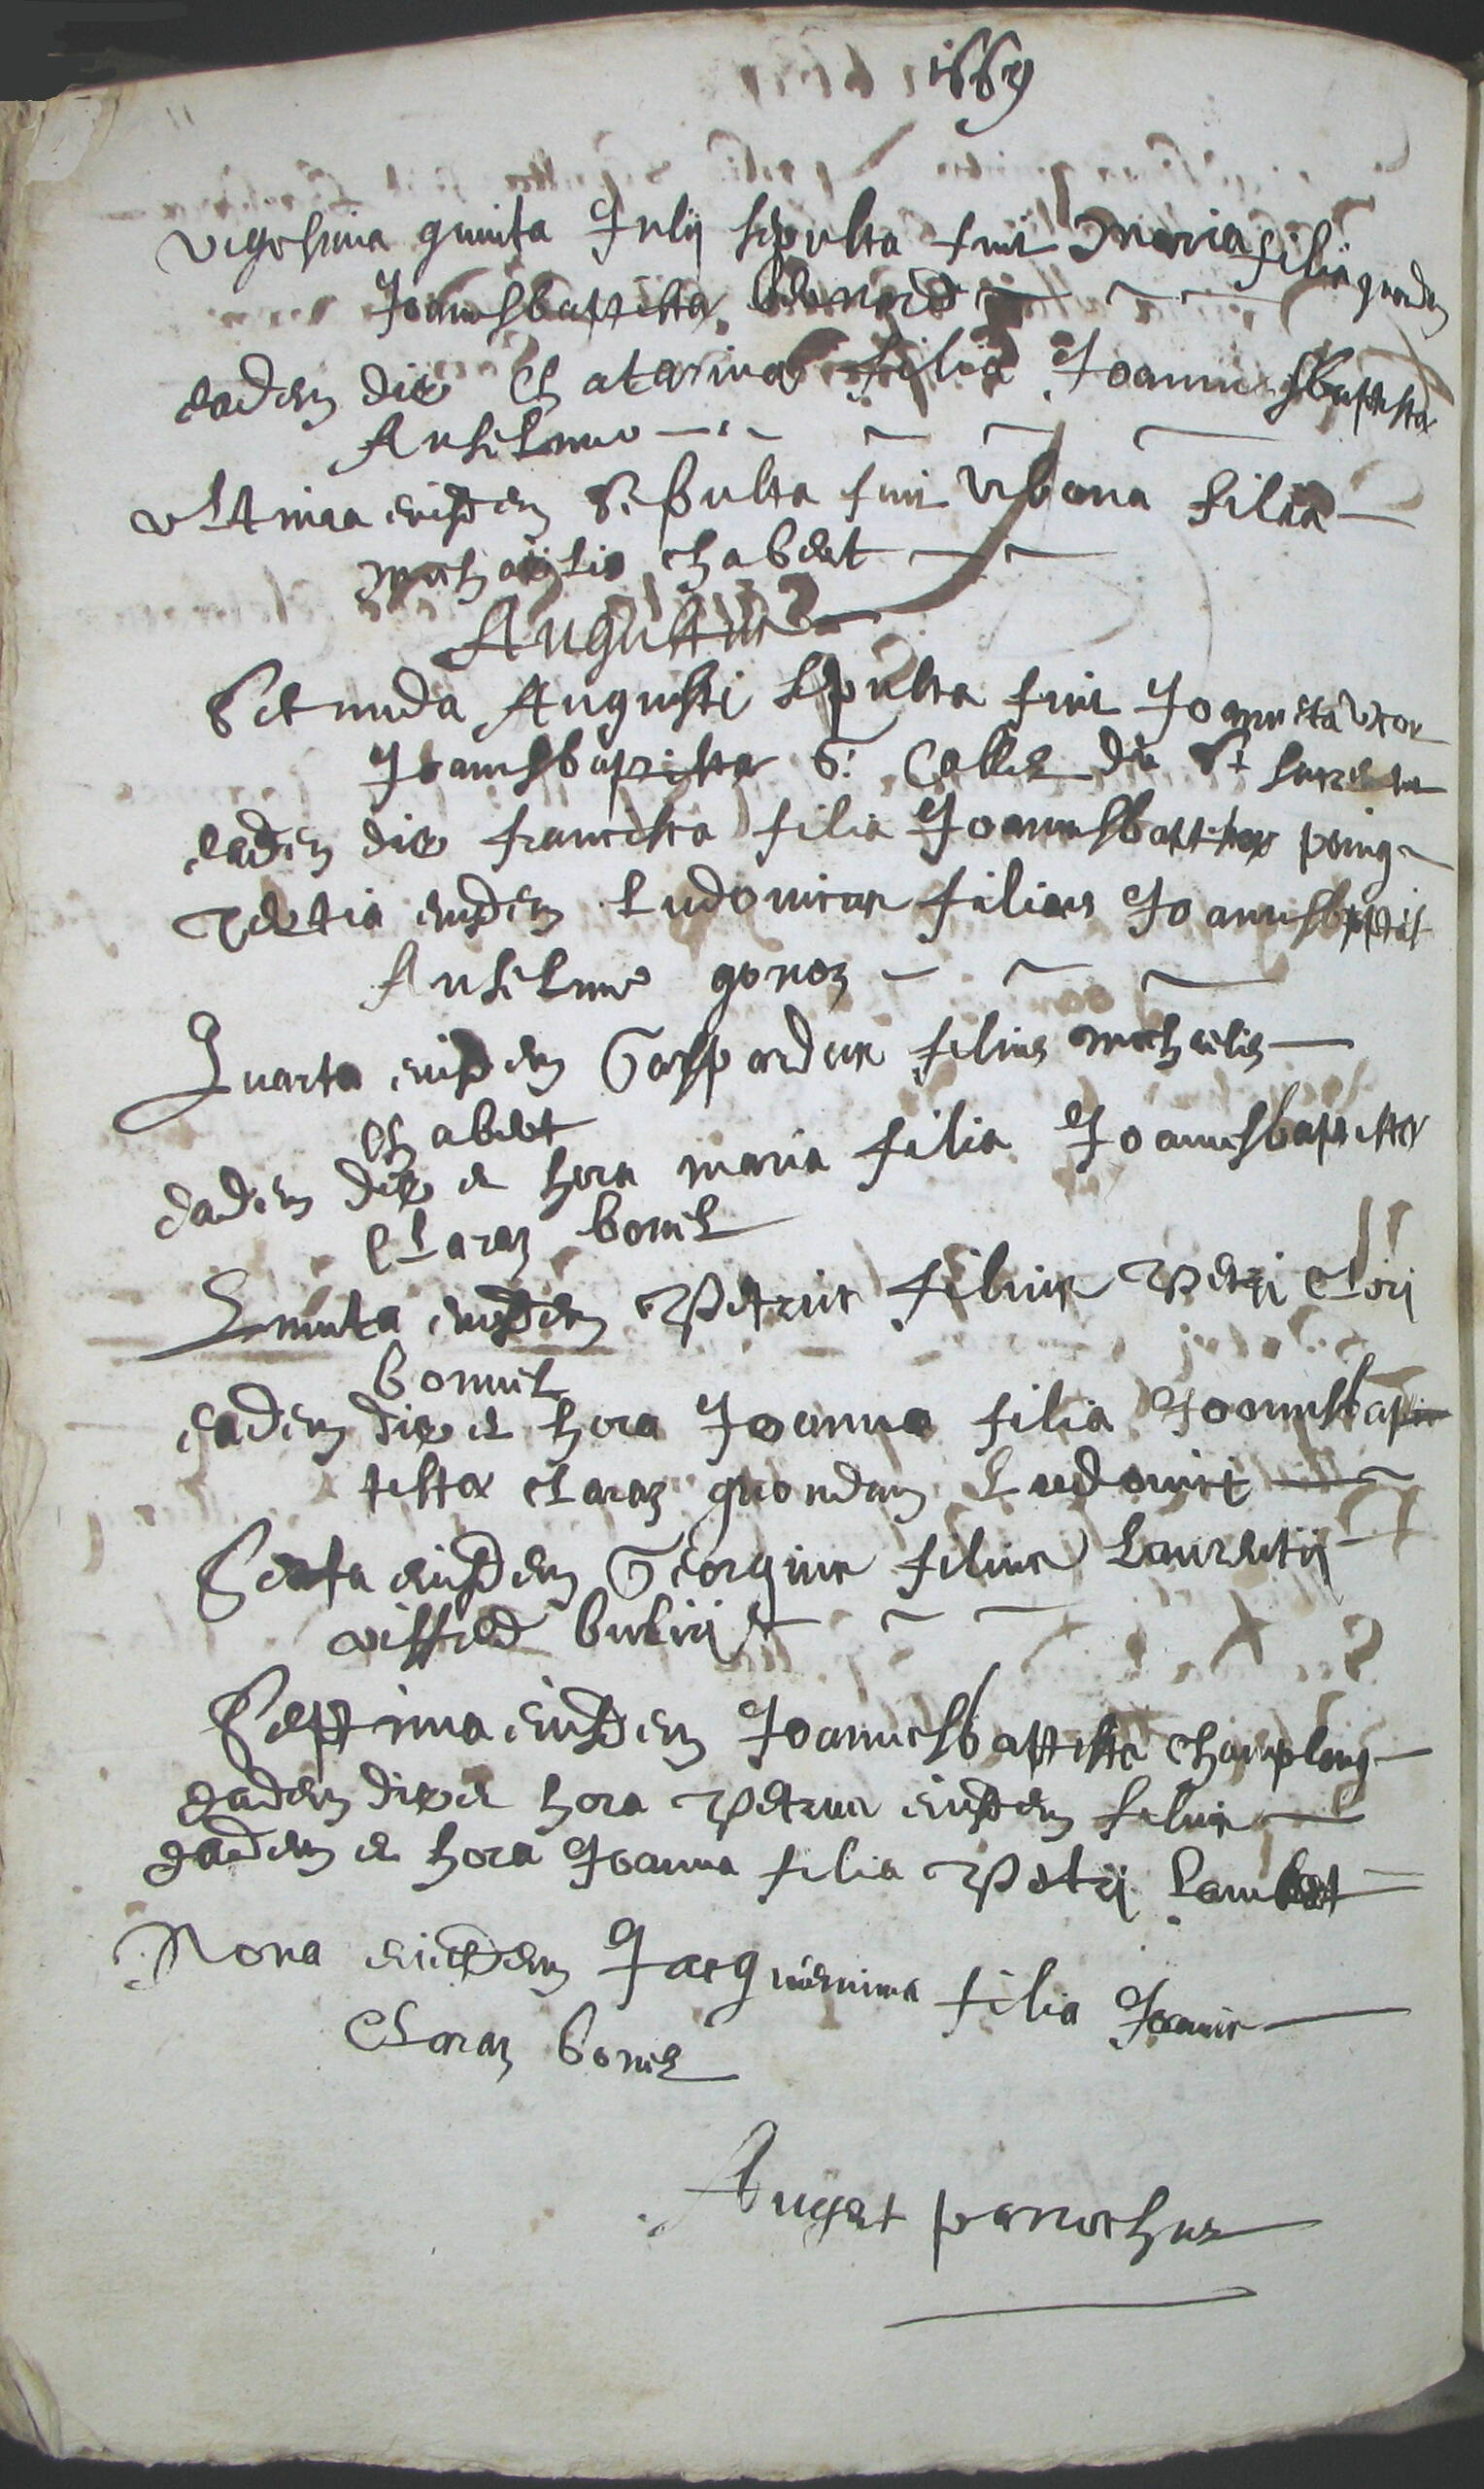 1669
Vigesima quinta Julij sepulta fuit Maria filia quondam
Joannisbaptistæ
eadem die Chatarina filia Joannisbaptistæ
Anselme
ultima eiusdem sepulta fuit Urbana filia
michaelis Chabert
Augustus
Secunda Augusti sepulta fuit Joanneta uxor
Joannisbaptistæ G. Collet du St
eadem die francisca filia Joannisbaptistæ
Tertia eiusdem Ludovicus filius Joannisbaptistæ
Anselme gonoz
Quarta eiusdem Gaspardus filius michaelis
Chabert
eadem die et hora maria filia Joannisbaptistæ
Claraz bonel
Quinta eiusdem Petrus filius Petri
bonnel
eadem die et hora Joanna filia Joannisbap
tistæ Claraz quondam Ludovici
Sexta eiusdem Georgius filius Laurentij
Septima eiusdem Joannesbaptista champlong
eadem die et hora Petrus eiusdem filius
eadem et hora Joanna filia Petri Lambert
Nona eiusdem Jacquemina filia Joannis
Claraz bonel
Auget parochus